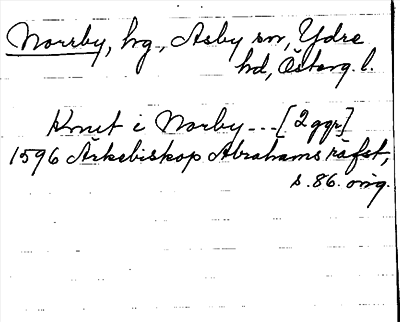 Norrby, hg., Asby sn, Ydre
hd, Österg. l.
Knut i Norby --- [2 ggr]
1596 Ärkebiskop Abrahams räfst,
s. 86. orig.